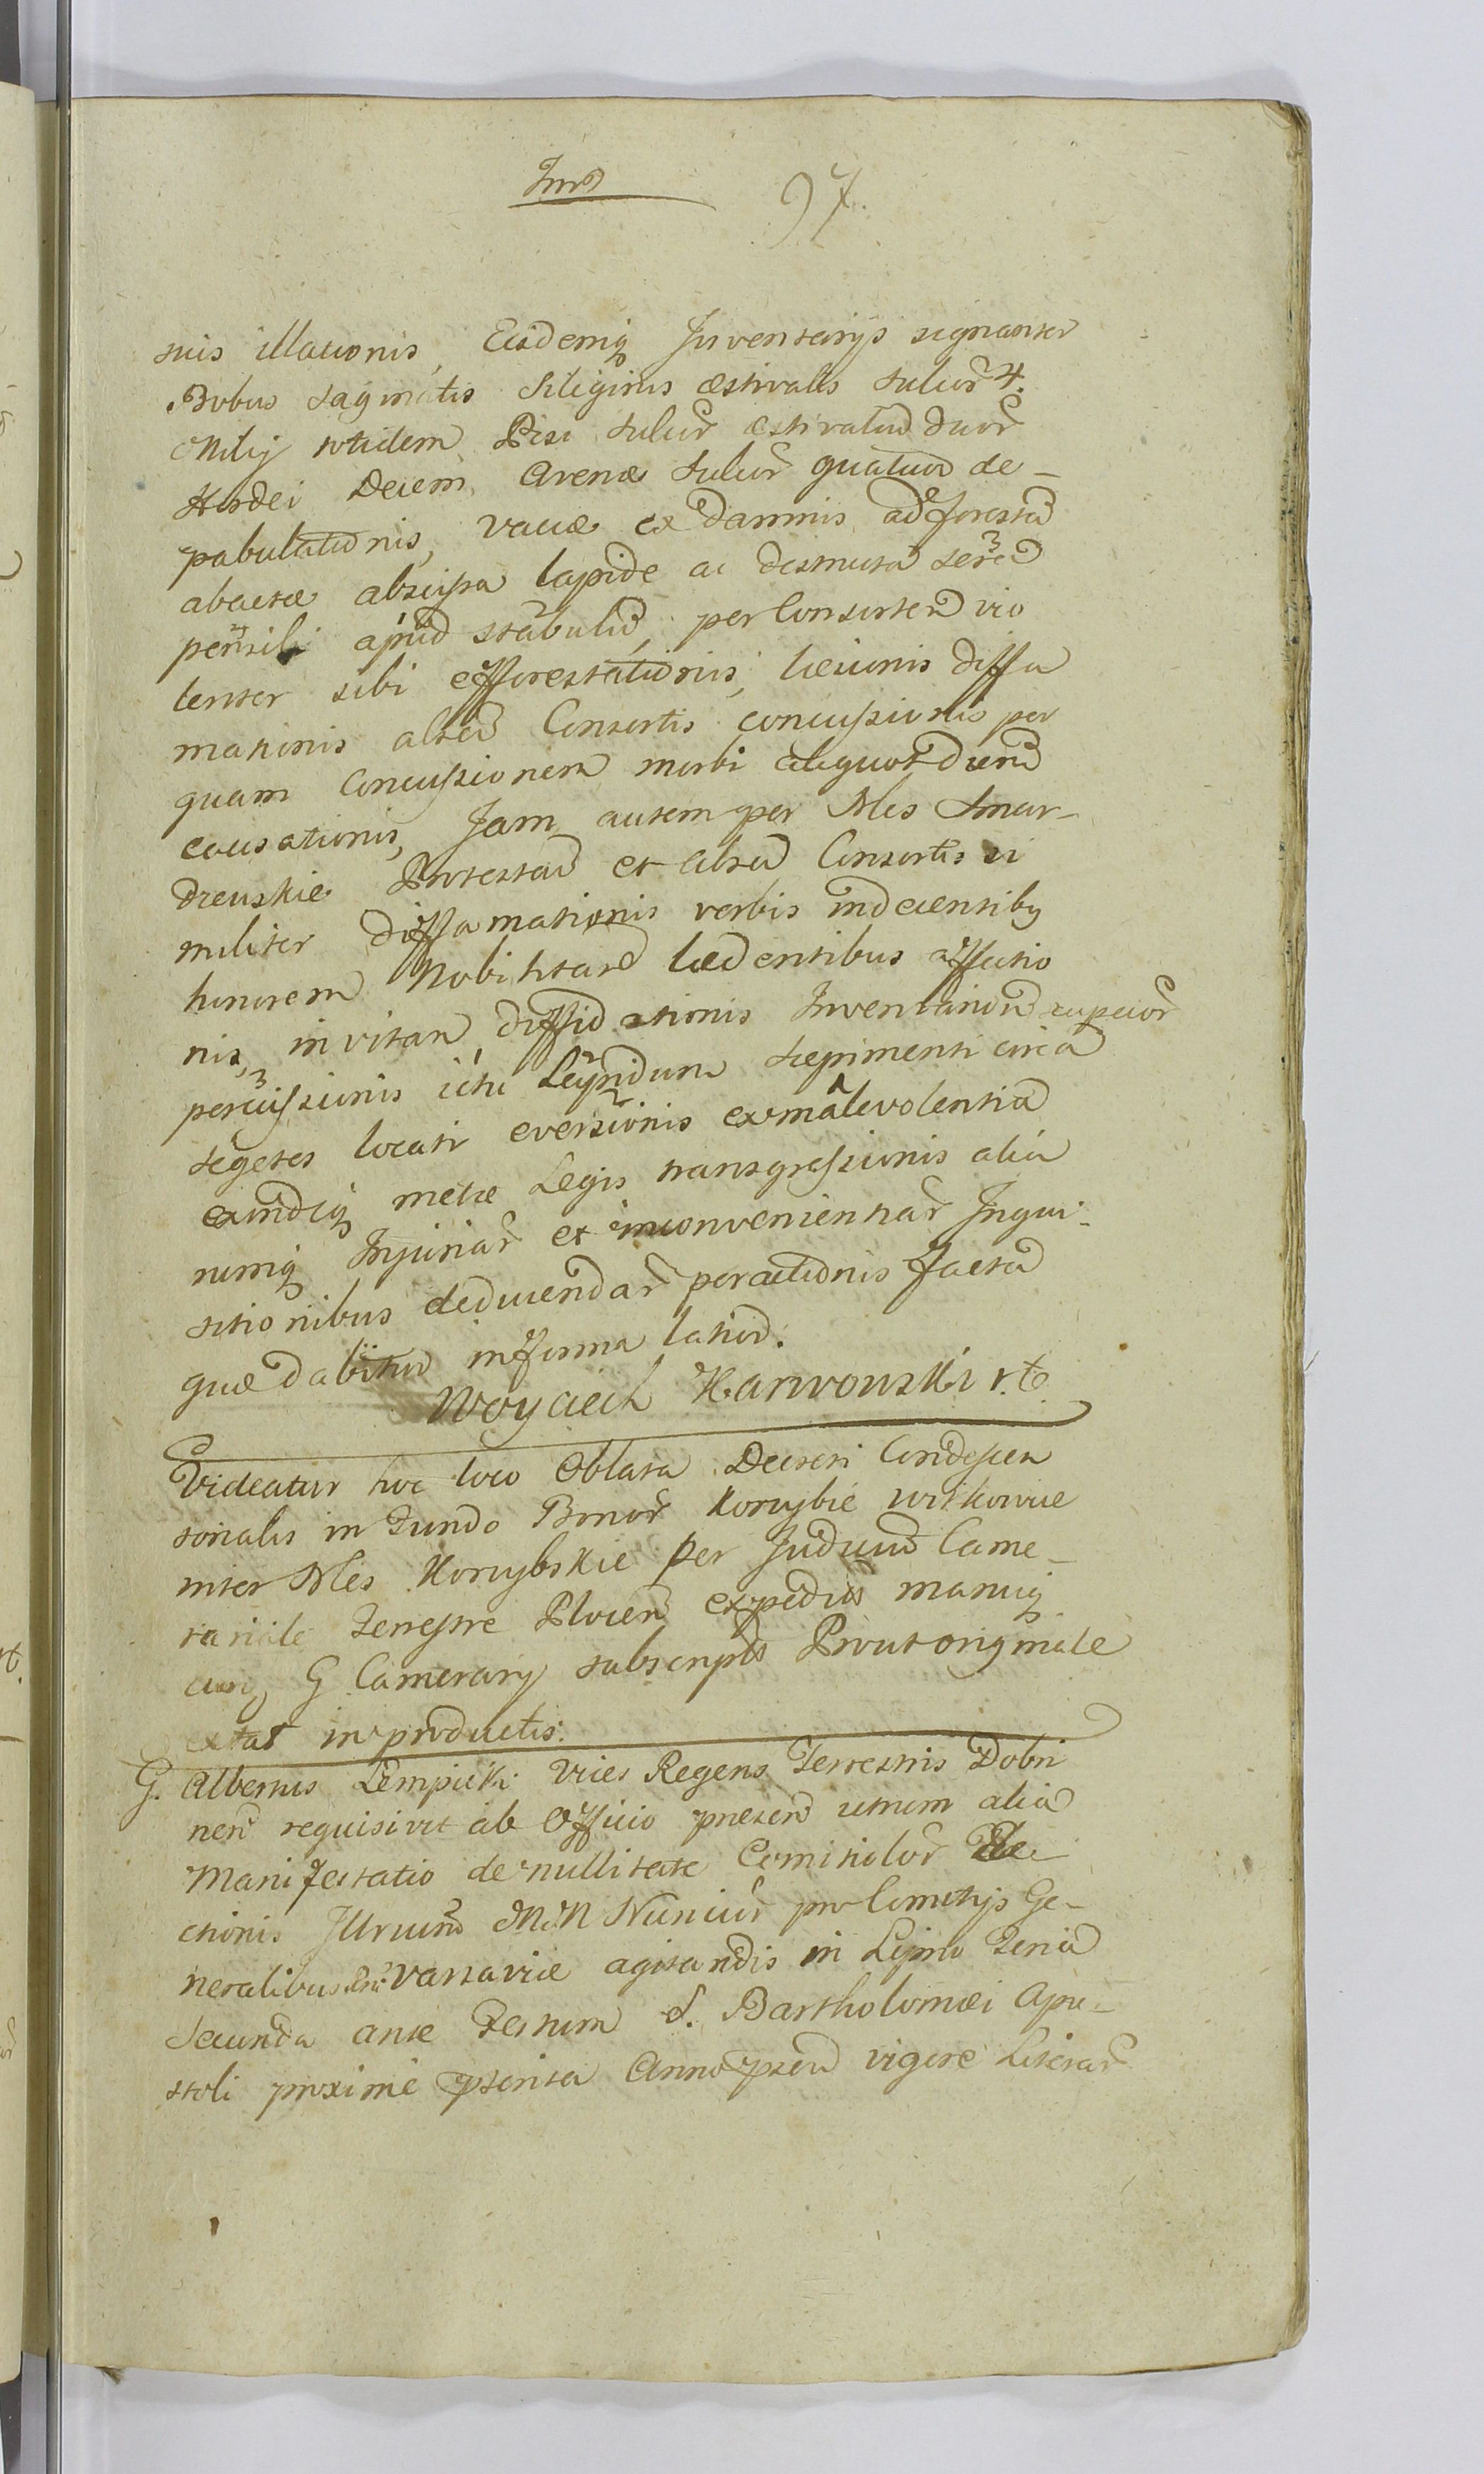 97.
suis illationis, Eisdemq Inventarijs signanter
Bobus saginatis Siliginis æstivalis sulcor 4.
Milij totidem Pisi sulcor æstivaliu duor
Hordei Decem, Avenæ sulcor quatuor de-
pabulationis, vaccæ ex damnis ad foresta
abactæ abscissa lapide ac desmuta sera
pensili apud stabulu, per Consortem vio
lenter sibi efforestationis, læsionis diffa
mationis alter Consortis concussionis per
quam Concussionem morbi aliquot dieru
causationis, Jam autem per Nles Smar-
drewskie Protestan et alter Consortis si
militer diffamationis verbis indecentiby
honorem Nobilitare lædentibus affectio
nis, in vitan diffidationis Inventarioru supecior
percussionis ictu Lapidum sepimenti circa
segetes locati eversionis ex malevolentia
exindeq metæ Legis transgressionis alia
rumq Injuriar et inconvenientiar Inqui-
sitionibus deducendar peractionis facta
quæ dabitur in forma latior.
Woyciech Karwowski r.t.
Videatur hoc loco Oblata Decreti Condescen
sorialis in Fundo Bonor Korzybie witkowie
inter Nles Korzybskie per Judiciu Came-
rariale Terrestre Plocen expedit manuq
eius G Camerarij subscript Prout originale
extat in productis.
G. Albertus Lempicki Vices Regens Terrestris Dobri
nen requisivit ab Officio præsen utrum alia
Manifestatio de nullitate Comitiolor Ele
ctionis Illrium MM Nuncior pro Comitijs Ge-
neralibus Varsaviæ agitandis in Lipno Feria
Secunda ante Festum S. Bartholomæi Apo-
stoli proxime præterita Anno præsen vigore Literar